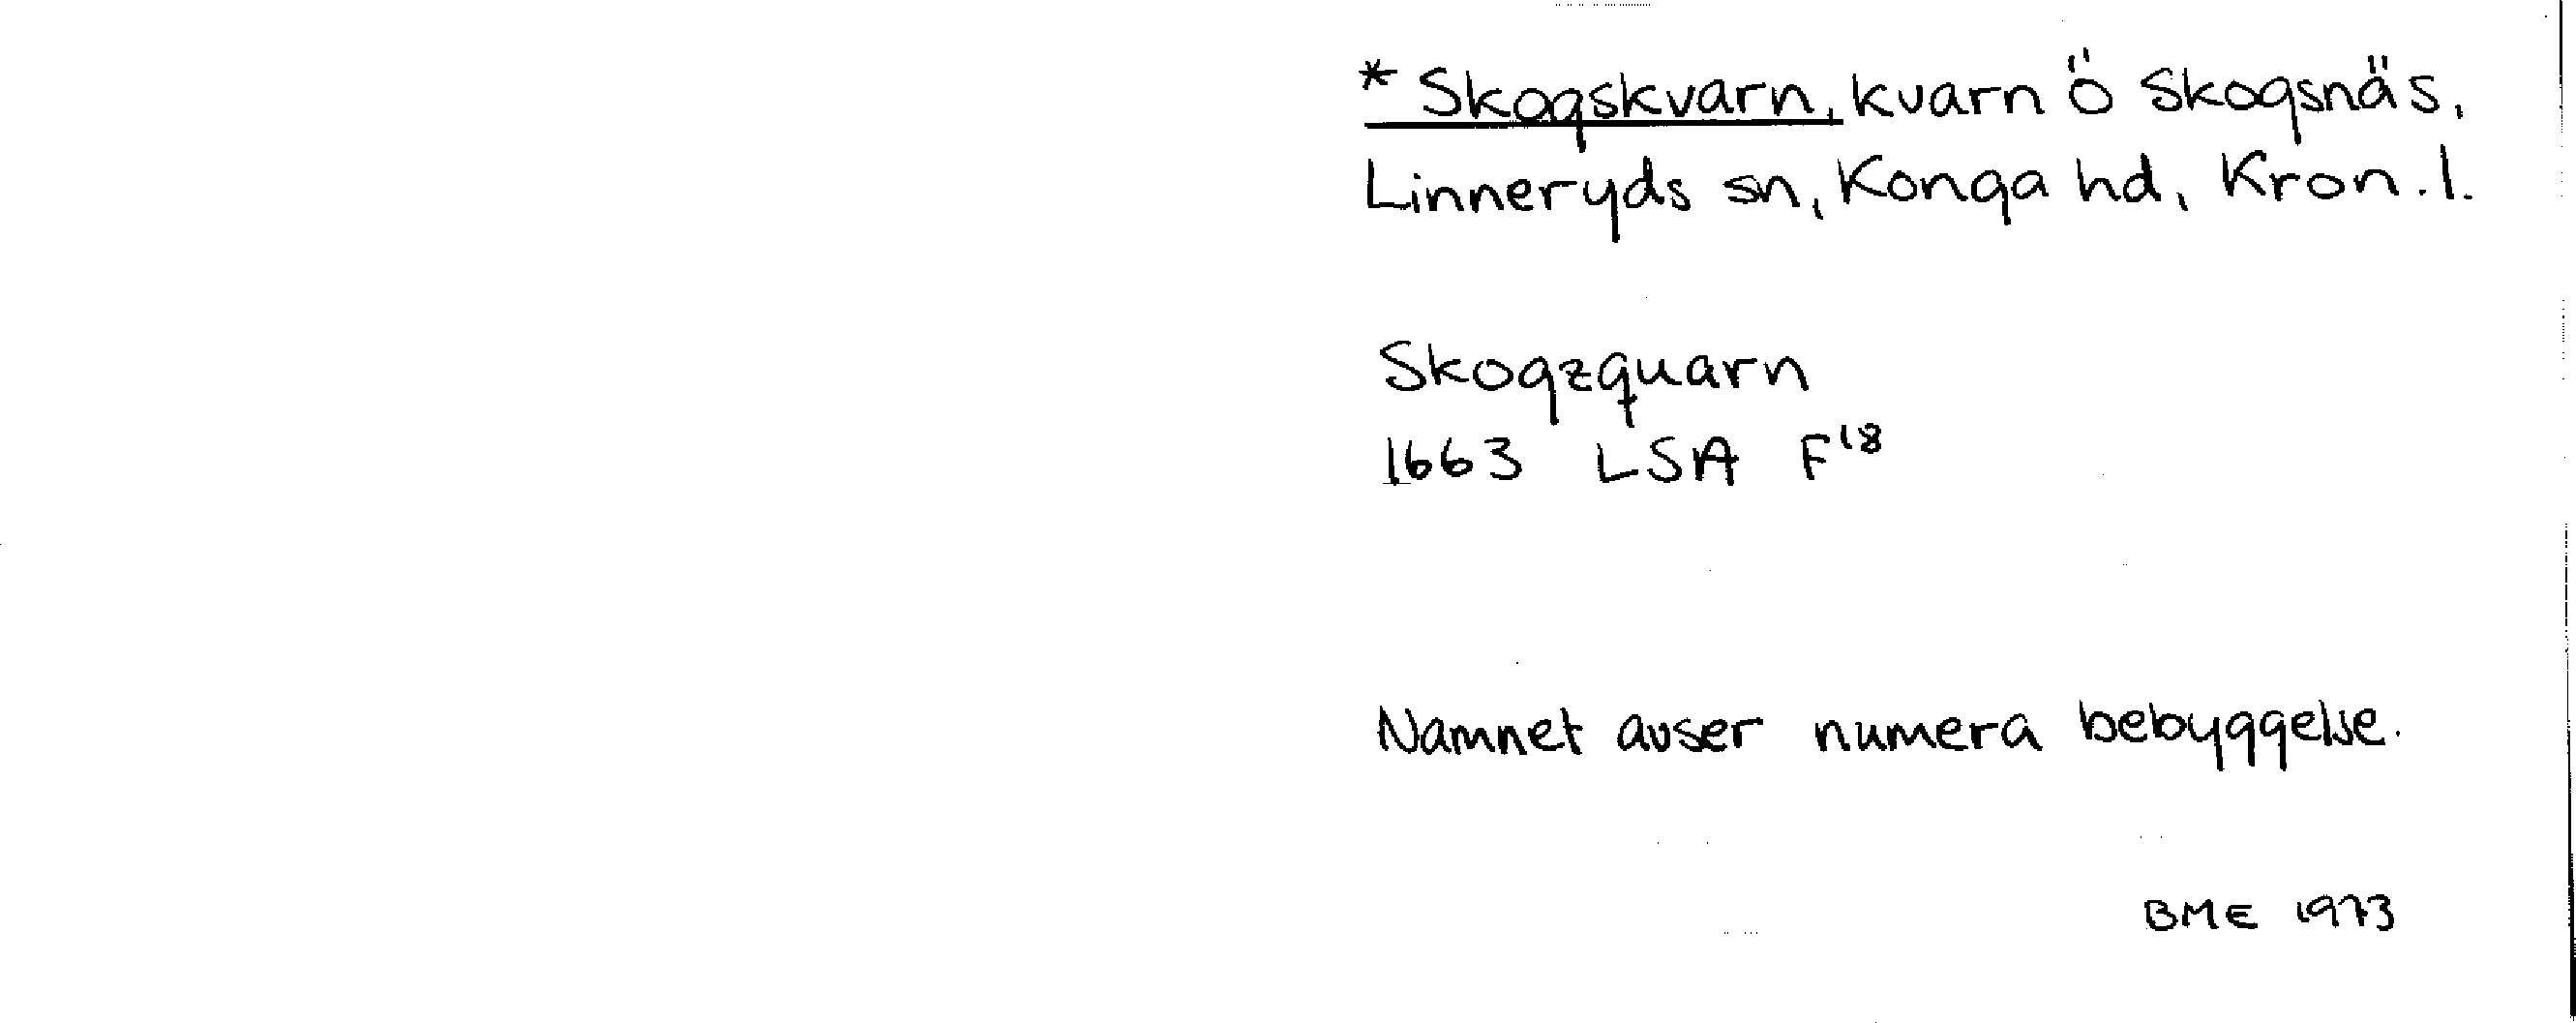 * Skogskvarn, kvarn ö Skogsnäs,
Linneryds sn, Konga hd, Kron. l.
Skogzquarn
1663 LSA F¹⁸
Namnet avser numera bebyggelse.
BME 1973